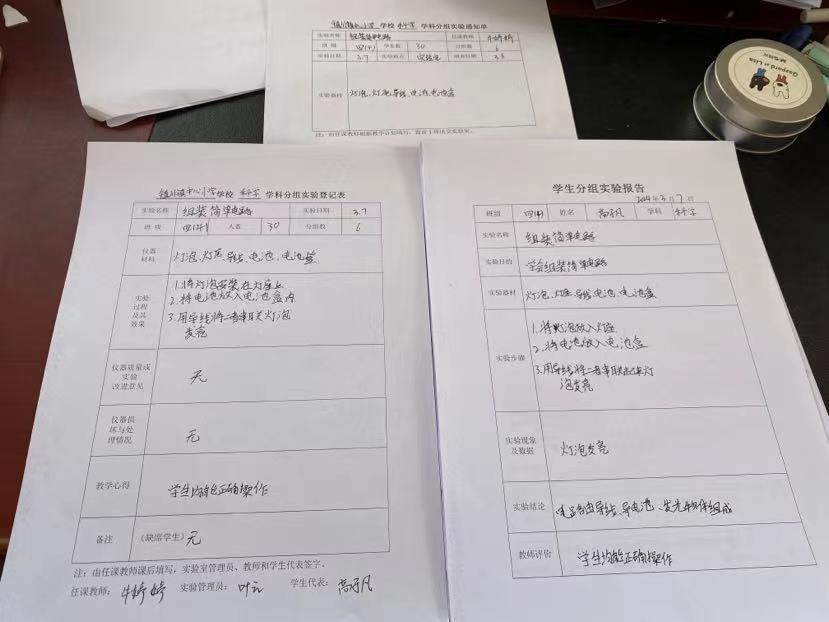 镇川镇中心小学 学校 科学 学科分组实验通知单
实验名称 组装简单电路 任课教师 牛婷婷
班级 四(4) 学生数 30 分组数 6
实验日期 3.7 实验地点 实验室 通知日期 3.5
实验器材 灯泡、灯座、导线、电池、电池盒
注：由任课教师根据教学计划填写，提前
镇川镇中心小学 学校 科学 学科分组实验登记表
实验名称 组装简单电路 实验日期 3.7
班级 四(4) 人数 30 分组数 6
仪器材料 灯泡、灯座、导线、电池、电池盒
实验过程及其效果 1.将灯泡安装在灯座上
2.将电池放入电池盒内
3.用导线将二者串联关灯泡
发亮
仪器质量或实验改进意见 无
仪器损坏与处理情况 无
教学心得 学生均能正确操作
备注 (缺席学生) 无
注：由任课教师课后填写，实验室管理员、教师和学生代表签字。
任课教师： 牛婷婷 实验管理员： 叶云 学生代表： 高子凡
学生分组实验报告
2024年3月7日
班级 四(4) 姓名 高子凡 学科 科学
实验名称 组装简单电路
实验目的 学会组装简单电路
实验器材 灯泡、灯座、导线、电池、电池盒
实验步骤 1.将灯泡放入灯座
2.将电池放入电池盒
3.用导线将二者串联起来灯
泡发亮
实验现象及数据 灯泡发亮
实验结论 电路由导线、导电池、发光物体组成
教师评价 学生均能正确操作
Gaspard et Lisa